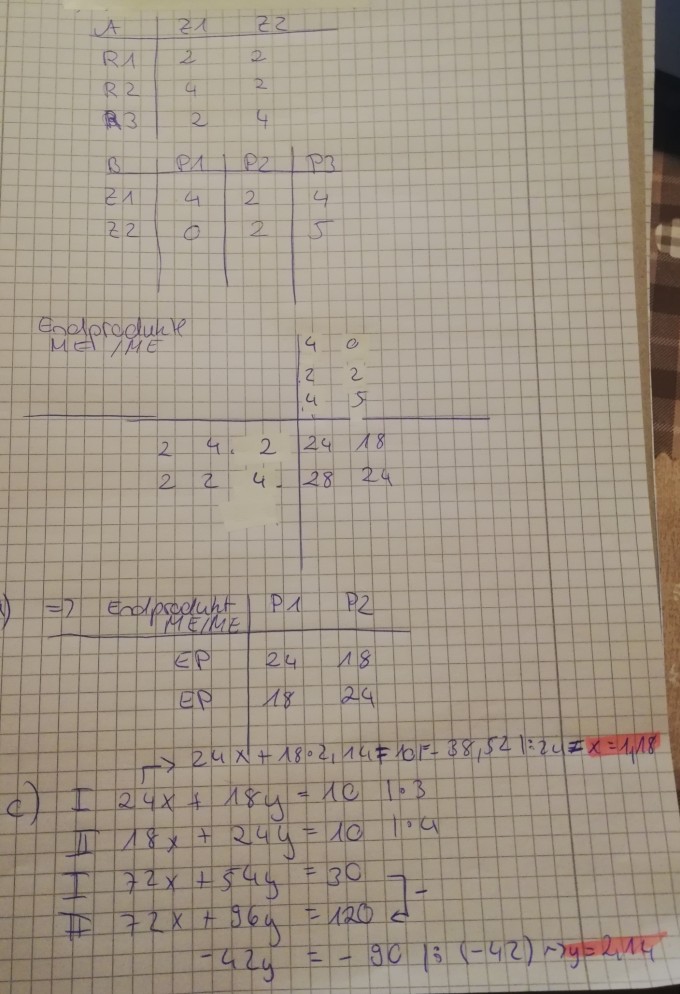 A Z1 Z2
R1 2 2
R2 4 2
R3 2 4
B P1 P2 P3
Z1 4 2 4
Z2 0 2 5
Endprodukt
ME/ME
4 0
2 2
4 5
2 4 . 2 24 18
2 2 4 . 28 24
) => Endprodukt P1 P2
ME/ME
EP 24 18
EP 18 24
→ 24x + 18·2,14 = 10 |- 38,52 |: 24 = x = 1,18
c) I 24x + 18y = 10 |·3
II 18x + 24y = 10 |·4
I 72x + 54y = 30
II 72x + 96y = 120
-
-42y = - 90 |: (-42) → y = 2,14